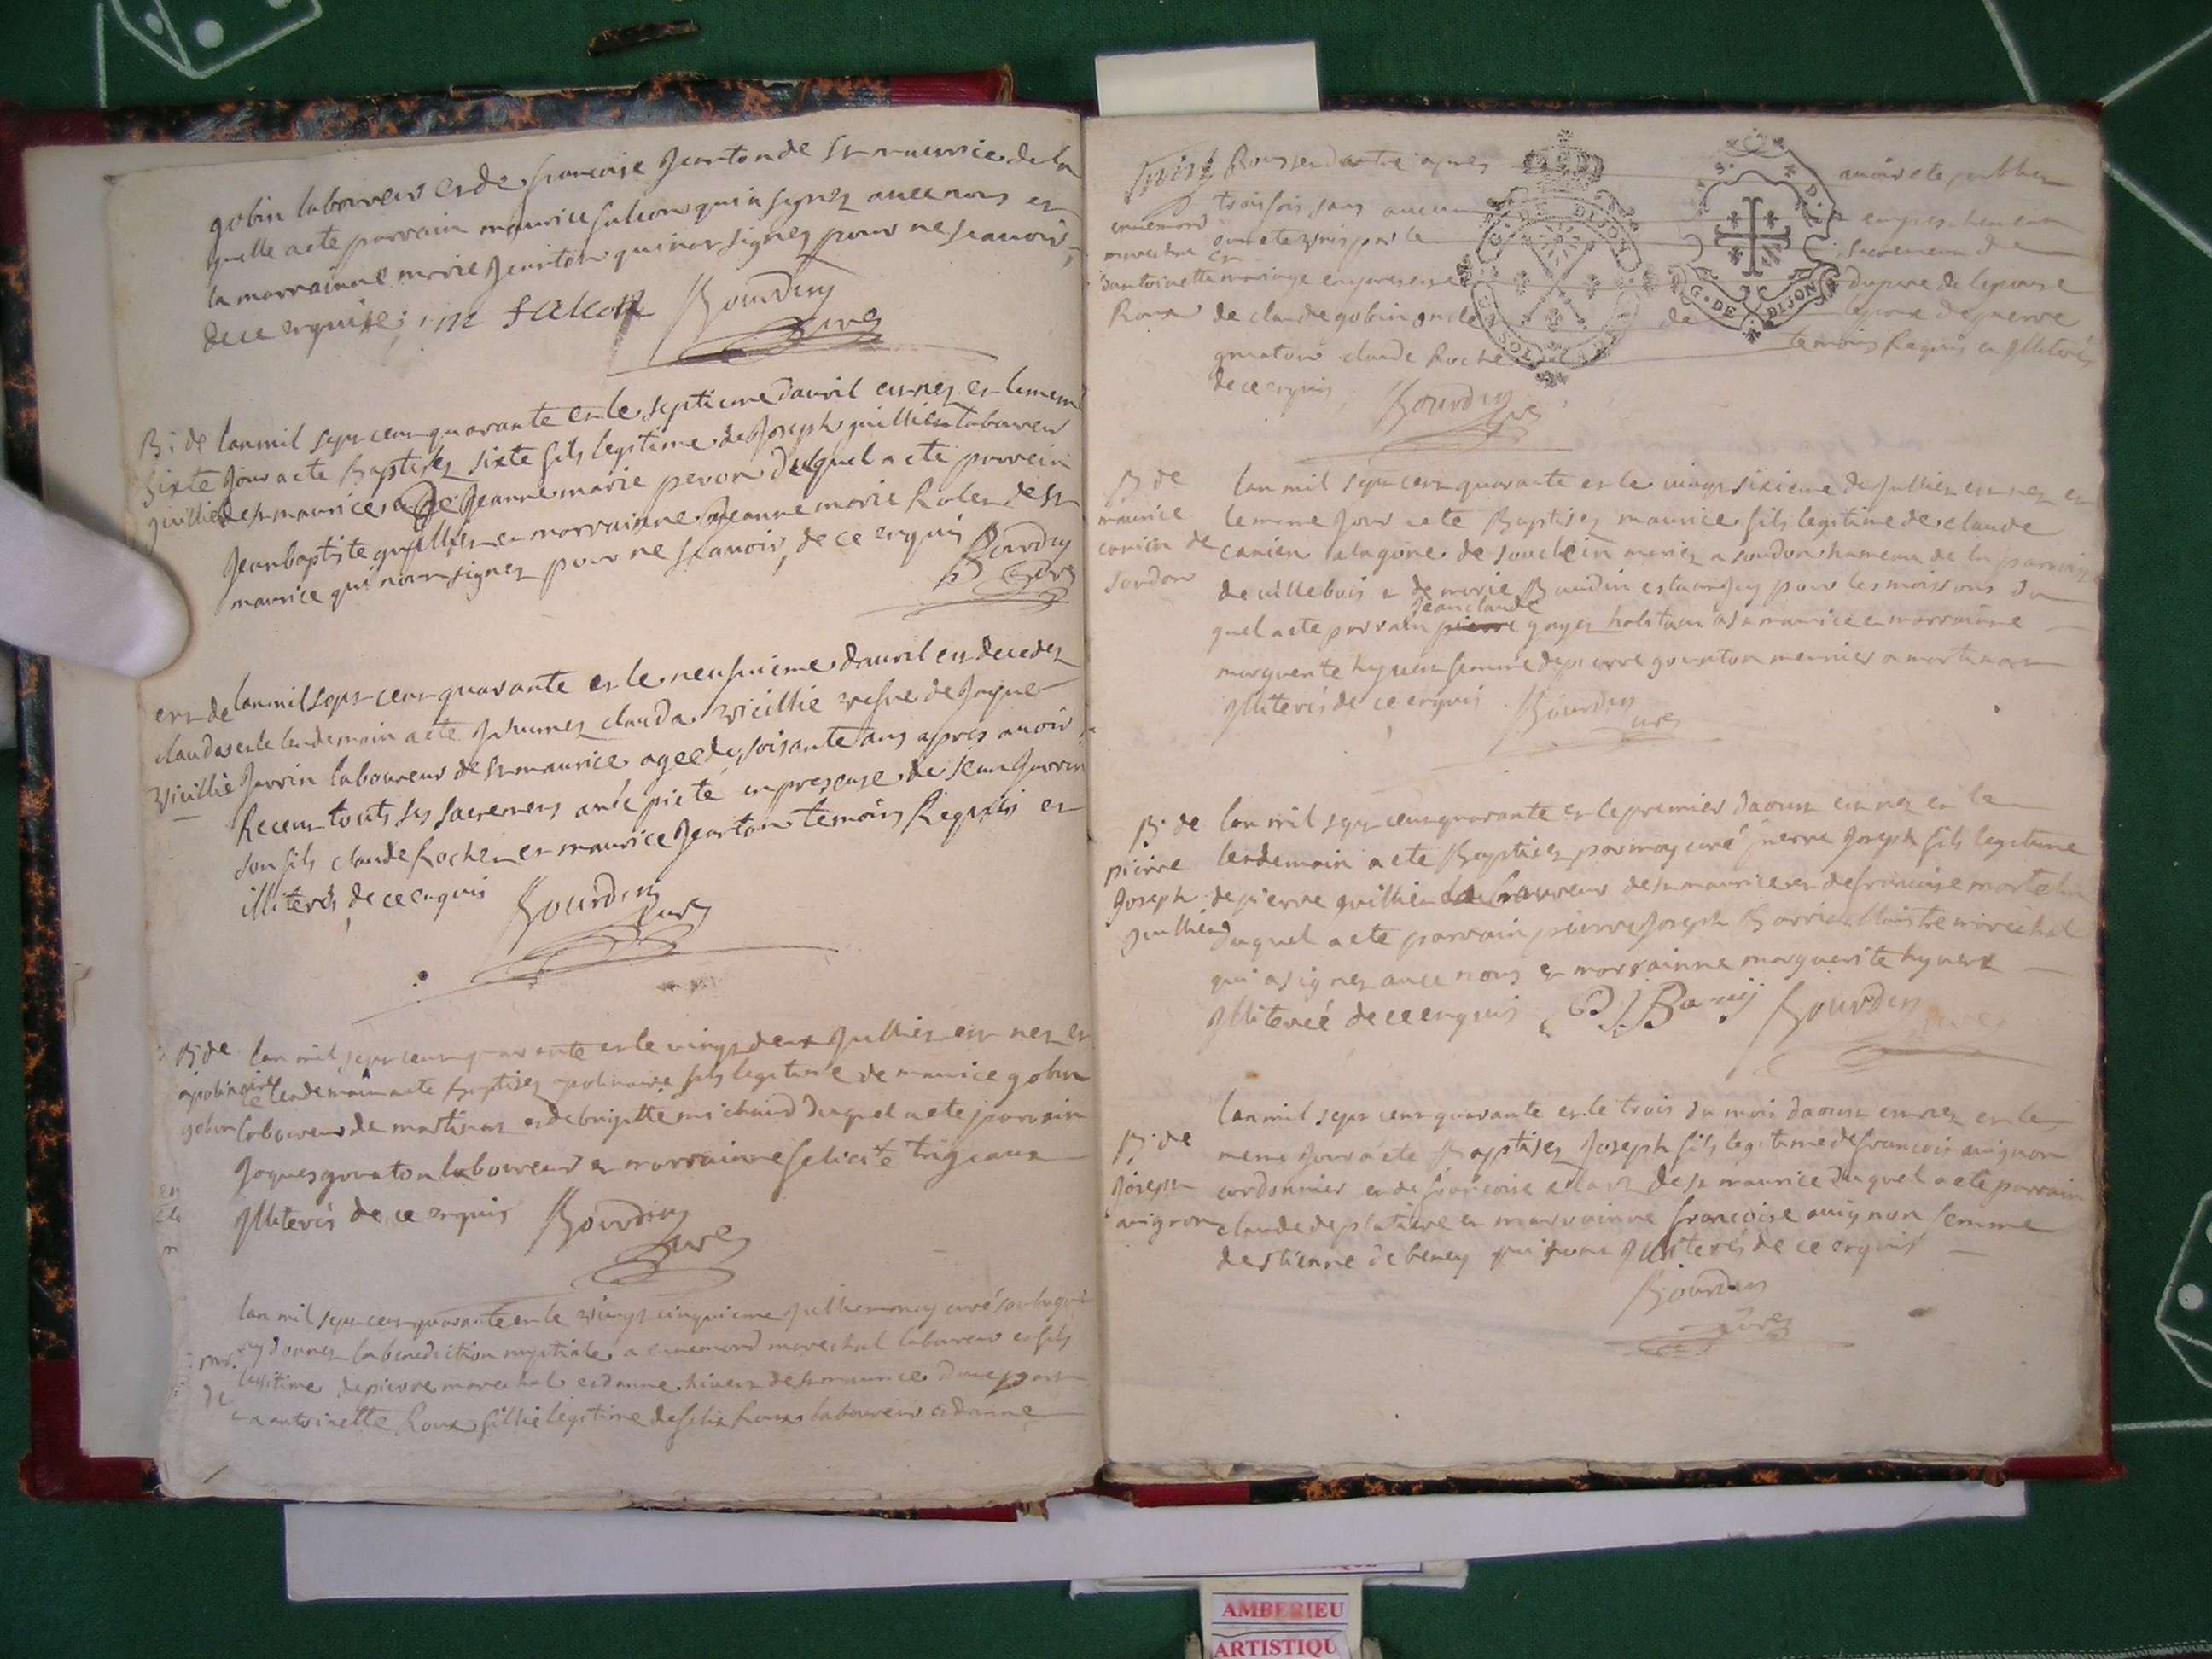 gobin laboureur et de francoise Jeanton de st maurice de la
quelle a ete parrain maurice falcon qui a signez avec nous et
la marrainne marie Jeanton qui na signez pour ne scavoir
de ce enquise, m falcon Bourdin
curez
B: de lan mil sept cent quarante et le septieme davril est nez et le meme
sixte Jour a ete Baptisez sixte fils legitime de Joseph guillier laboureur
guillier de st maurice et de Jeanne marie peron duquel a ete parrain
Jean baptiste guillier et marrainne Jeanne marie de st
maurice qui nont signez pour ne scavoir, de ce enquis Bourdin
curez
ent de lan mil sept cent quarante et le neufvieme davril est decedez
clauda et le lendemain a ete Inhumez clauda vieillie vefve de Jaque
vieillie Jarrin laboureur de st maurice agee de soisante ans apres avoir
Receu touts ses sacremens avec pieté en presense de Jean Jarrin
son fils claude Rocher et maurice Jeanton temoins Requis et
illiterés, de ce enquis Bourdin
curez
B: de lan mil sept cent quarante et le vingt deux Julliet est nez et
apolinaire le lendemain a ete Baptisez apolinaire fils legitime de maurice gobin
gobin laboureur de martinas et de brigitte michaud duquel a ete parrain
Jaques gouaton laboureur et marrainne felicité
Illiterés de ce enquis Bourdin
curez
lan mil sept cent quarante et le vingt cinquieme Julliet moy curé soubsigné
ay donnez la benediction nuptiale a ennemond marechal laboureur et fils
legitime de pierre marechal et danne hivert de st maurice dune part
de et antoinette Roux fillie legitime de felix Roux laboureur et danne
Rousset dautre apres avoir ete publiez
trois fois sans aucun empeschement
ennemond ont ete unis par le sacrement de
marechal et
antoinette mariage en presense du pere de lepouse
Roux de claude gobin oncle de lepoux de pierre
gouaton claude Roche temoins Requis et Illiterés
de ce enquis Bourdin
curez
B: de lan mil sept cent quarante et le vingt sixieme de Julliet est nez et
maurice le meme Jour a ete Baptisez maurice fils legitime de claude
canien de canien de souclein mariez a soudon hameau de la paroisse
soudon de villebois et de marie Baudin estant Icy pour les moissons du
Jean claude
quel a ete parrain pierre gayet habitant a st maurice et marrainne
marguerite hyvert femme de pierre gouaton meunier a martinas
Illiterés de ce enquis Bourdin
curez
B: de lan mil sept cent quarante et le premier daoust est nez et le
pierre lendemain a ete Baptisez par moy curé pierre Joseph fils legitime
Joseph de pierre guillier laboureur de st maurice et de francoise martelin
guillier duquel a ete parrain pierre Joseph Barrier Maistre marechal
qui a signez avec nous et marrainne marguerite hyvert
Illiterée de ce enquis Bourdin
curez
lan mil sept cent quarante et le trois du mois daoust est nez et le
B: de meme Jour a ete Baptisez Joseph fils legitime de francois avignon
Joseph cordonnier et de francoise de st maurice duquel a ete parrain
avignon claude de platiere et marrainne francoise avignon femme
destienne de beney qui sont Illiterés de ce enquis
Bourdin
curez
G. DE DIJON
G. DE DIJON
AMBERIEU
ARTISTIQU